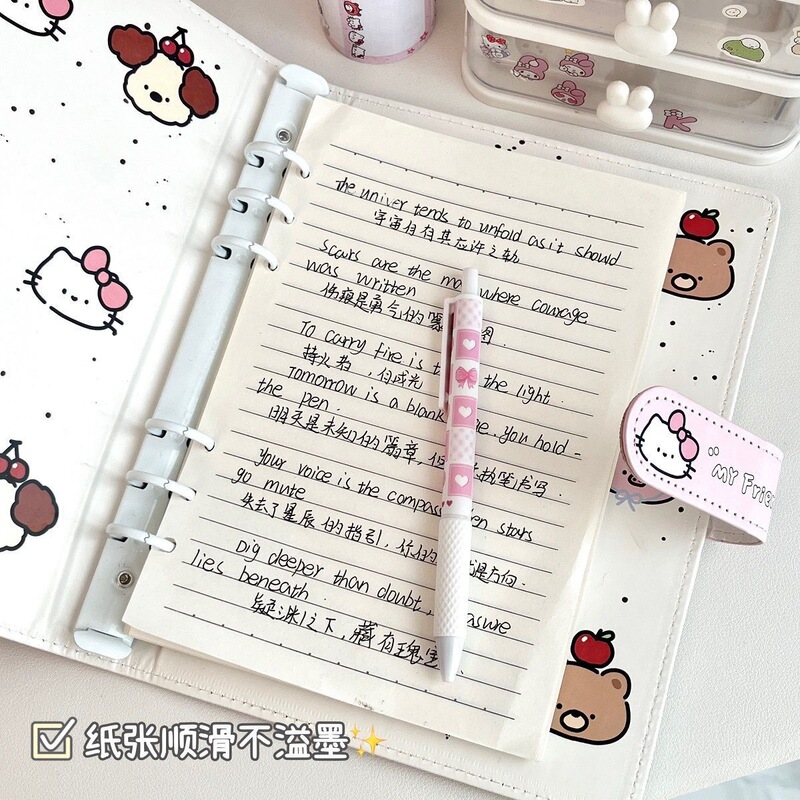 the univer tends to unfold as it should
宇宙自有其应许之轨
Scars are the where courage
was written
伤痕是勇气的 图.
To carry fire is the light.
持火者，自成光
Tomorrow is a blank you hold -
the pen.
明天是未知的篇章，但 执笔书写.
Your voice is the compass stars
go mute
失去了星辰的指引，你的 是方向.
Dig deeper than doubt,
lies beneath.
疑渊之下，藏有瑰宝.
"MY Frie
K
纸张顺滑不溢墨